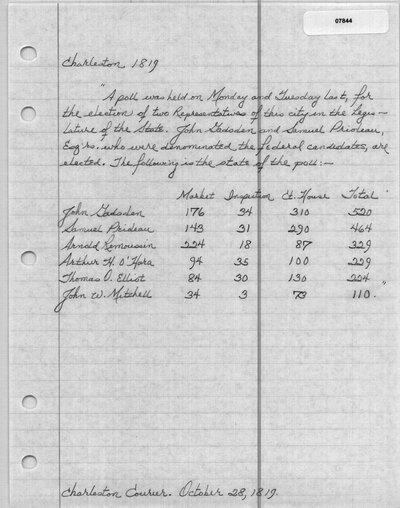 07844
Charleston 1819
"A poll was held on Monday and Tuesday last, for
the election of two Representatives of this city in the Legis-
lature of the State. John Gadsden and Samuel Prioleau,
Esqrs. who were denominated the federal candidates, are
elected. The following is the state of the poll:—
Market Inspection Ct. House Total
John Gadsden 176 34 310 520
Samuel Prioleau 143 31 290 464
Arnold Remoussin 224 18 87 329
Arthur H. O'Hara 94 35 100 229
Thomas O. Elliot 84 30 130 224
John W. Mitchell 34 3 73 110."
Charleston Courier. October 28, 1819.